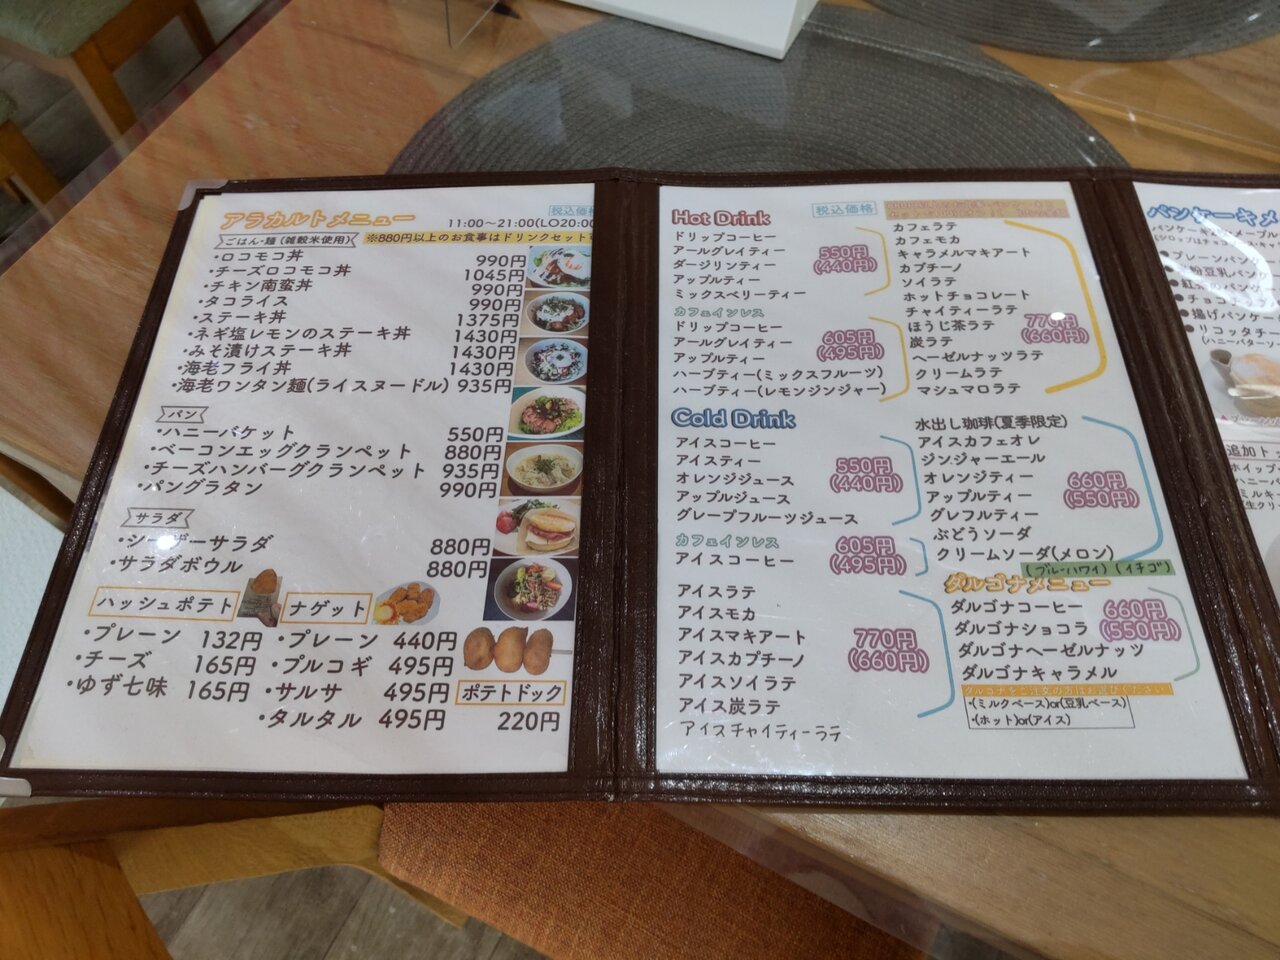 アラカルトメニュー
11:00～21:00(LO20:00
税込価格
ごはん・麺(雑穀米使用)
※880円以上のお食事はドリンクセット
・ロコモコ丼 990円
・チーズロコモコ丼 1045円
・チキン南蛮丼 990円
・タコライス 990円
・ステーキ丼 1375円
・ネギ塩レモンのステーキ丼 1430円
・みそ漬けステーキ丼 1430円
・海老フライ丼 1430円
・海老ワンタン麺(ライスヌードル) 935円
パン
・ハニーバケット 550円
・ベーコンエッグクランペット 880円
・チーズハンバーグクランペット 935円
・パングラタン 990円
サラダ
・シーザーサラダ 880円
・サラダボウル 880円
ハッシュポテト
・プレーン 132円
・チーズ 165円
・ゆず七味 165円
ナゲット
・プレーン 440円
・プルコギ 495円
・サルサ 495円
・タルタル 495円
ポテトドック
220円
Hot Drink
税込価格
ドリップコーヒー
アールグレイティー
ダージリンティー
アップルティー
ミックスベリーティー
550円
(440円)
カフェインレス
ドリップコーヒー
アールグレイティー
アップルティー
ハーブティー(ミックスフルーツ)
ハーブティー(レモンジンジャー)
605円
(495円)
カフェラテ
カフェモカ
キャラメルマキアート
カプチーノ
ソイラテ
ホットチョコレート
チャイティーラテ
ほうじ茶ラテ
炭ラテ
ヘーゼルナッツラテ
クリームラテ
マシュマロラテ
770円
(660円)
Cold Drink
アイスコーヒー
アイスティー
オレンジジュース
アップルジュース
グレープフルーツジュース
550円
(440円)
カフェインレス
アイスコーヒー
605円
(495円)
アイスラテ
アイスモカ
アイスマキアート
アイスカプチーノ
アイスソイラテ
アイス炭ラテ
アイスチャイティーラテ
770円
(660円)
水出し珈琲(夏季限定)
アイスカフェオレ
ジンジャーエール
オレンジティー
アップルティー
グレフルティー
ぶどうソーダ
クリームソーダ(メロン)
(ブルーハワイ)(イチゴ)
660円
(550円)
ダルゴナメニュー
ダルゴナコーヒー
ダルゴナショコラ
ダルゴナヘーゼルナッツ
ダルゴナキャラメル
660円
(550円)
ダルゴナをご注文の方はお選びください
・(ミルクベース)or(豆乳ベース)
・(ホット)or(アイス)
パンケーキメ